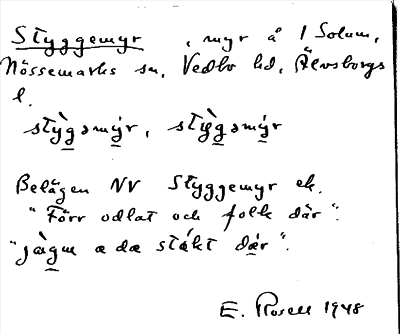 Styggemyr, myr å 1 Solum,
Nössemarks sn, Vedbo hd, Älvsborgs
l.
stỳgəmýr, stỳgəmýr
Belägen NV Styggemyr ek.
"Förr odlat och folk där".
"jàgu a da stákt dár".
E. Rosell 1948